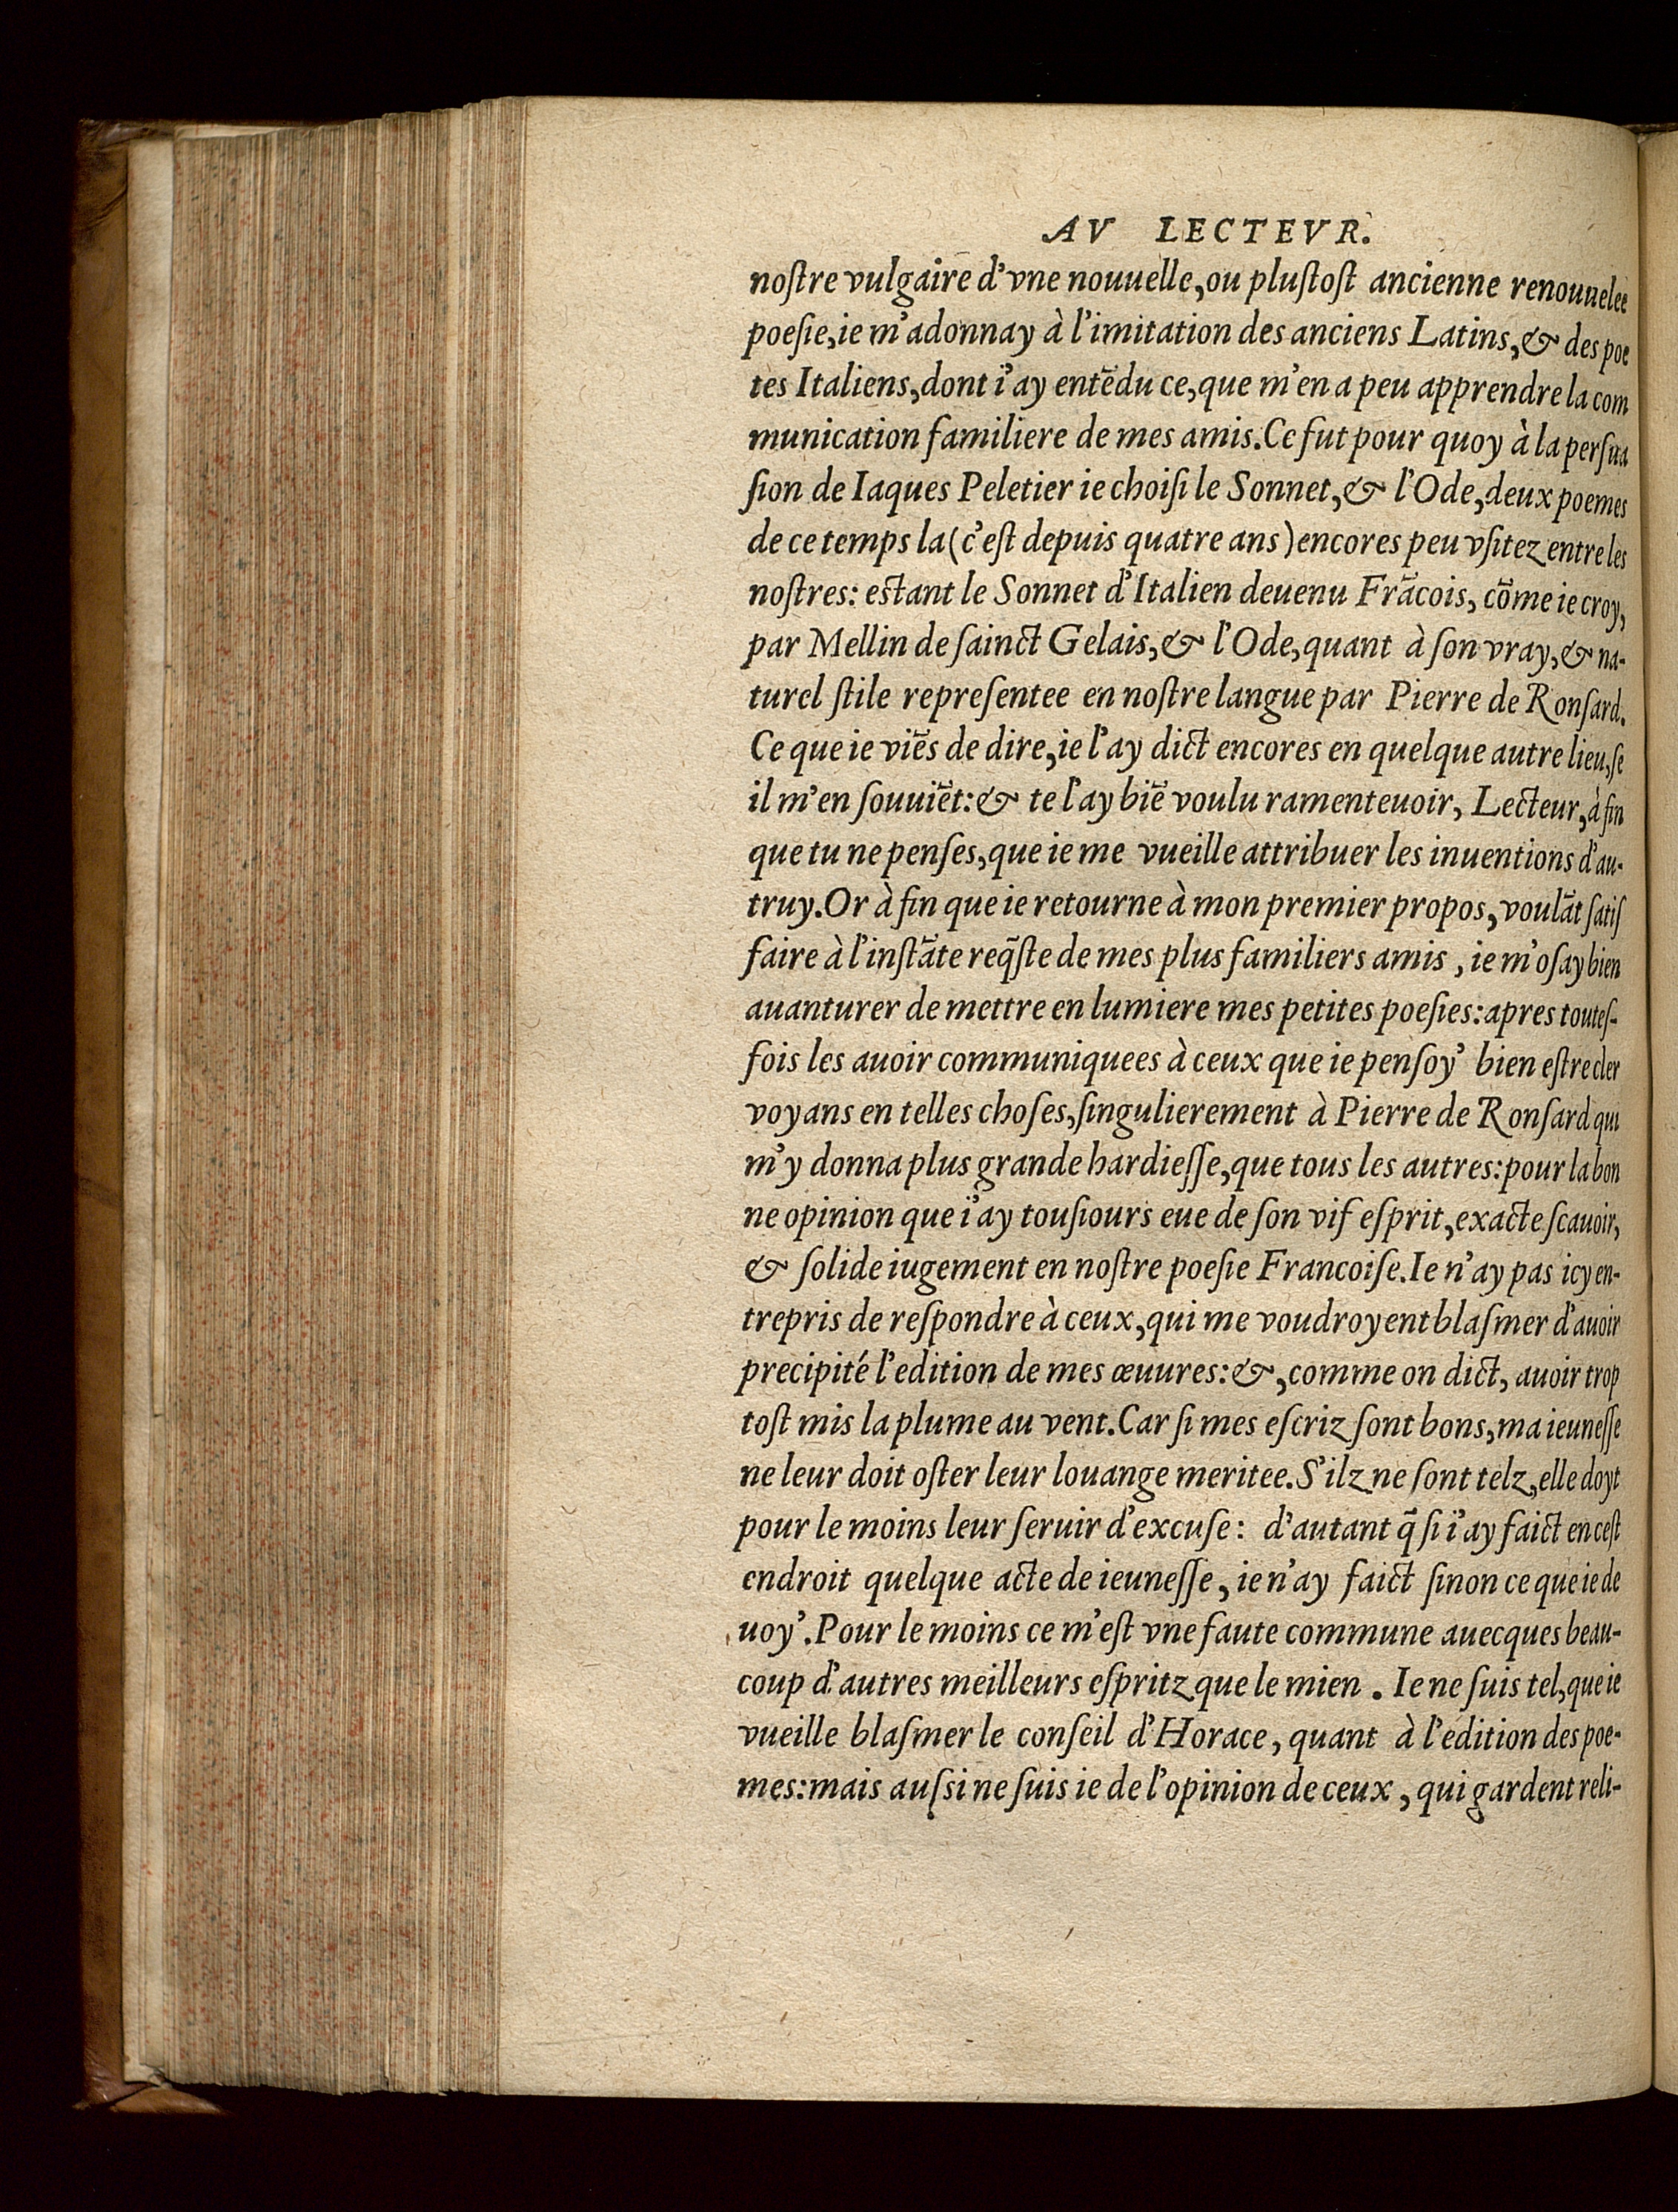 AV LECTEVR.
noſtre vulgaire d'vne nouuelle, ou pluſtoſt ancienne renouuelee
poeſie, ie m'adonnay à l'imitation des anciens Latins, & des poe
tes Italiens, dont i'ay entẽdu ce, que m'en a peu apprendre la com
munication familiere de mes amis. Ce fut pour quoy à la perſua
ſion de Iaques Peletier ie choiſi le Sonnet, & l'Ode, deux poemes
de ce temps la (c'eſt depuis quatre ans) encores peu vſitez entre les
noſtres: estant le Sonnet d'Italien deuenu Frãcois, cõme ie croy,
par Mellin de ſainct Gelais, & l'Ode, quant à ſon vray, & na-
turel ſtile repreſentee en noſtre langue par Pierre de Ronſard.
Ce que ie viẽs de dire, ie l'ay dict encores en quelque autre lieu, ſe
il m'en ſouuiẽt: & te l'ay biẽ voulu ramenteuoir, Lecteur, à fin
que tu ne penſes, que ie me vueille attribuer les inuentions d'au-
truy. Or à fin que ie retourne à mon premier propos, voulãt ſatiſ
faire à l'inſtãte req̃ſte de mes plus familiers amis, ie m'oſay bien
auanturer de mettre en lumiere mes petites poeſies: apres touteſ-
fois les auoir communiquees à ceux que ie penſoy' bien eſtre cler
voyans en telles choſes, ſingulierement à Pierre de Ronſard qui
m'y donna plus grande hardieſſe, que tous les autres: pour la bon
ne opinion que i'ay touſiours eue de ſon vif eſprit, exacte ſcauoir,
& ſolide iugement en noſtre poeſie Francoiſe. Ie n'ay pas icy en-
trepris de reſpondre à ceux, qui me voudroyent blaſmer d'auoir
precipité l'edition de mes œuures: &, comme on dict, auoir trop
toſt mis la plume au vent. Car ſi mes eſcriz ſont bons, ma ieuneſſe
ne leur doit oſter leur louange meritee. S'ilz ne ſont telz, elle doyt
pour le moins leur ſeruir d'excuſe: d'autant q̃ ſi i'ay faict en ceſt
endroit quelque acte de ieuneſſe, ie n'ay faict ſinon ce que ie de
uoy'. Pour le moins ce m'eſt vne faute commune auecques beau-
coup d'autres meilleurs eſpritz que le mien. Ie ne ſuis tel, que ie
vueille blaſmer le conſeil d'Horace, quant à l'edition des poe-
mes: mais auſsi ne ſuis ie de l'opinion de ceux, qui gardent reli-